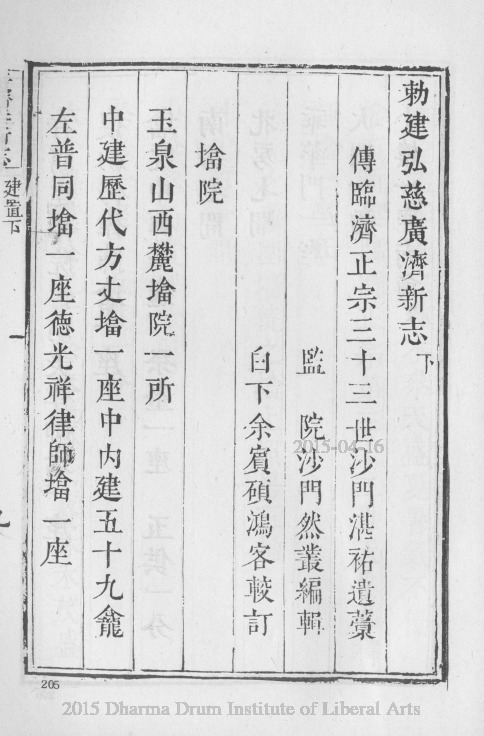 勅建弘慈廣濟新志 下
傳臨濟正宗三十三世沙門湛祐遺藁
監 院沙門然叢編輯
白下余賓碩鴻客較訂
墖院
玉泉山西麓墖院一所
中建歷代方丈墖一座中内建五十九龕
左普同墖一座德光祥律師墖一座
建置下
205
2015-04-16
2015 Dharma Drum Institute of Liberal Arts